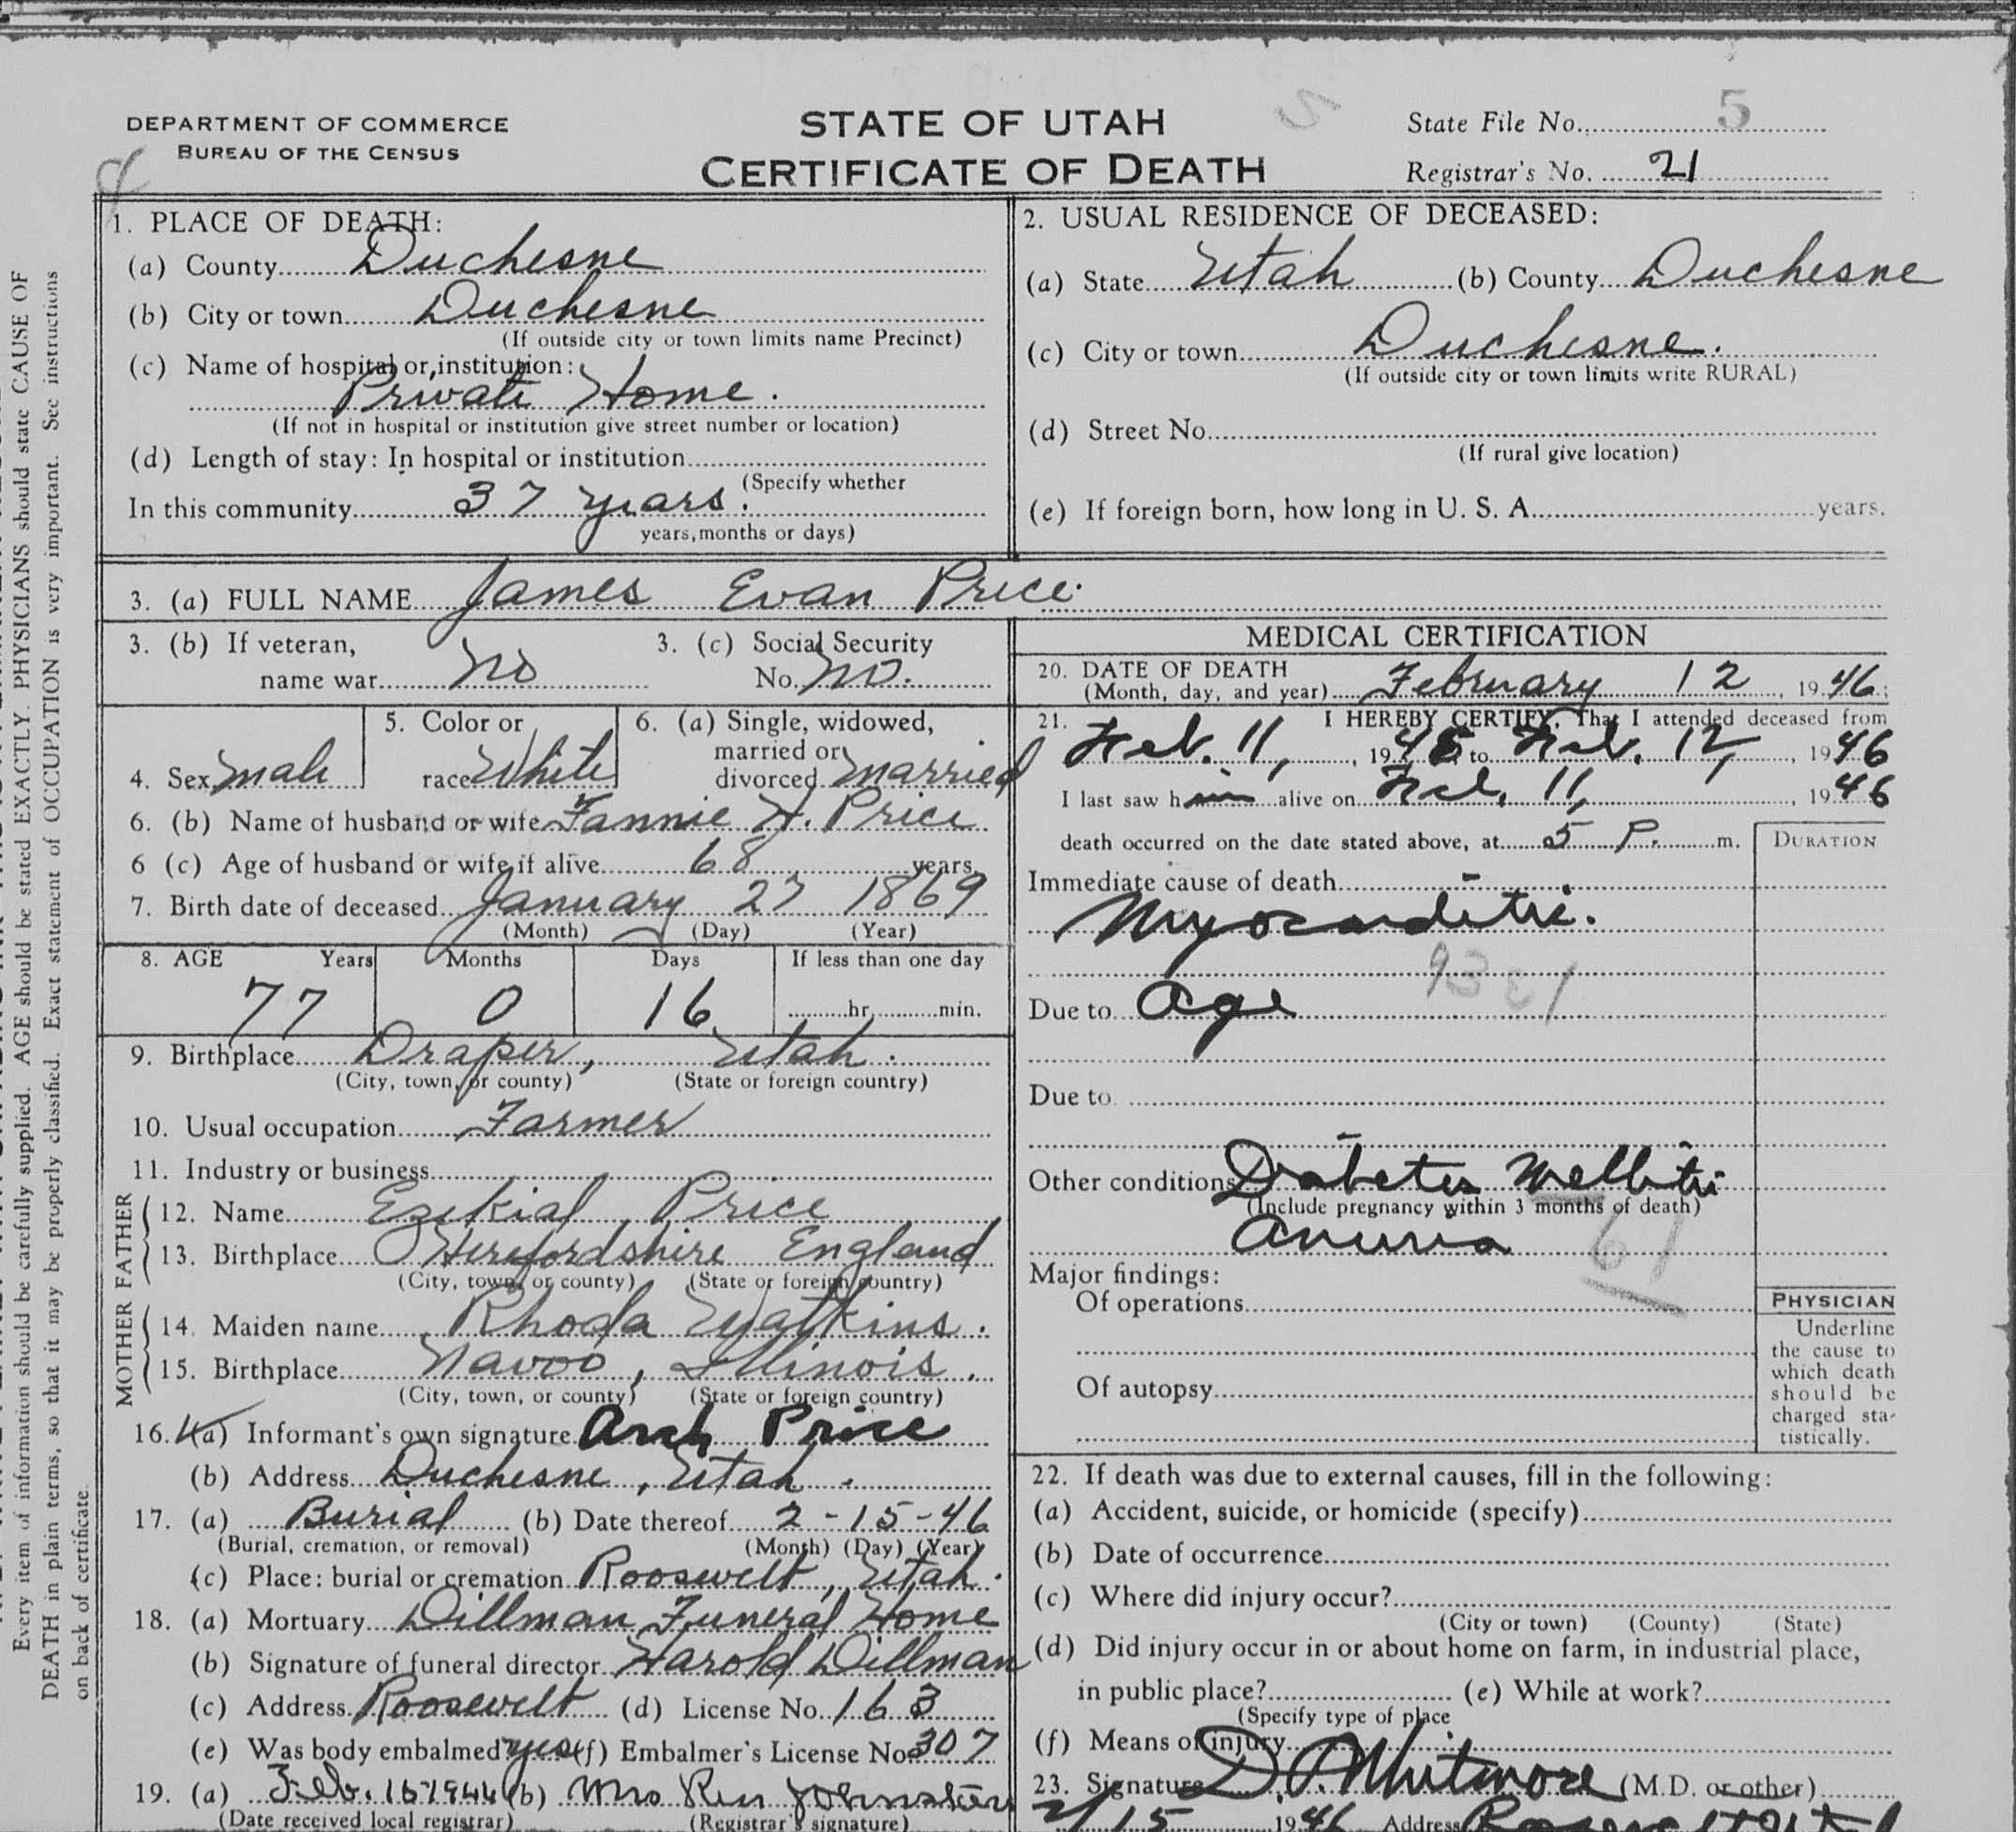 DEPARTMENT OF COMMERCE
BUREAU OF THE CENSUS
STATE OF UTAH
CERTIFICATE OF DEATH
State File No. 5
Registrar's No. 21
1. PLACE OF DEATH:
(a) County Duchesne
(b) City or town Duchesne
(If outside city or town limits name Precinct)
(c) Name of hospital or institution:
Private Home.
(If not in hospital or institution give street number or location)
(d) Length of stay: In hospital or institution
(Specify whether
In this community 37 years.
years, months or days)
2. USUAL RESIDENCE OF DECEASED:
(a) State Utah (b) County Duchesne
(c) City or town Duchesne.
(If outside city or town limits write RURAL)
(d) Street No.
(If rural give location)
(e) If foreign born, how long in U. S. A. years.
3. (a) FULL NAME James Evan Price.
3. (b) If veteran,
name war No
3. (c) Social Security
No. No.
4. Sex Male
5. Color or
race White
6. (a) Single, widowed,
married or
divorced Married
6. (b) Name of husband or wife Fannie H. Price
6 (c) Age of husband or wife if alive 68 years
7. Birth date of deceased January 27 1869
(Month) (Day) (Year)
8. AGE Years Months Days If less than one day
77 0 16 hr. min.
9. Birthplace Draper, Utah.
(City, town, or county) (State or foreign country)
10. Usual occupation Farmer
11. Industry or business
FATHER
12. Name Ezekial Price
13. Birthplace Herefordshire England
(City, town, or county) (State or foreign country)
MOTHER
14. Maiden name Rhoda Watkins.
15. Birthplace Navoo, Illinois.
(City, town, or county) (State or foreign country)
16. (a) Informant's own signature Arch Price
(b) Address Duchesne, Utah.
17. (a) Burial (b) Date thereof 2-15-46
(Burial, cremation, or removal) (Month) (Day) (Year)
(c) Place: burial or cremation Roosevelt, Utah.
18. (a) Mortuary Dillman Funeral Home
(b) Signature of funeral director Harold Dillman
(c) Address Roosevelt (d) License No. 163
(e) Was body embalmed? yes (f) Embalmer's License No. 307
19. (a) Feb. (b) Mrs
(Date received local registrar) (Registrar's signature)
MEDICAL CERTIFICATION
20. DATE OF DEATH
(Month, day, and year) February 12, 1946;
21. I HEREBY CERTIFY, That I attended deceased from
Feb. 11, 1946 to Feb. 12, 1946
I last saw him alive on Feb. 11, 1946
death occurred on the date stated above, at 5 P. m.
DURATION
Immediate cause of death
Myocarditis.
9331
Due to Age
Due to
Other conditions Diabetes Mellitis
(Include pregnancy within 3 months of death)
Anuria
61
Major findings:
Of operations
Of autopsy
PHYSICIAN
Underline
the cause to
which death
should be
charged sta-
tistically.
22. If death was due to external causes, fill in the following:
(a) Accident, suicide, or homicide (specify)
(b) Date of occurrence
(c) Where did injury occur?
(City or town) (County) (State)
(d) Did injury occur in or about home on farm, in industrial place,
in public place? (e) While at work?
(Specify type of place
(f) Means of injury
23. Signature Whitmore (M.D. or other)
2/15 1946 Address Roosevelt Utah
Every item of information should be carefully supplied. AGE should be stated EXACTLY. PHYSICIANS should state CAUSE OF
DEATH in plain terms, so that it may be properly classified. Exact statement of OCCUPATION is very important. See instructions
on back of certificate.